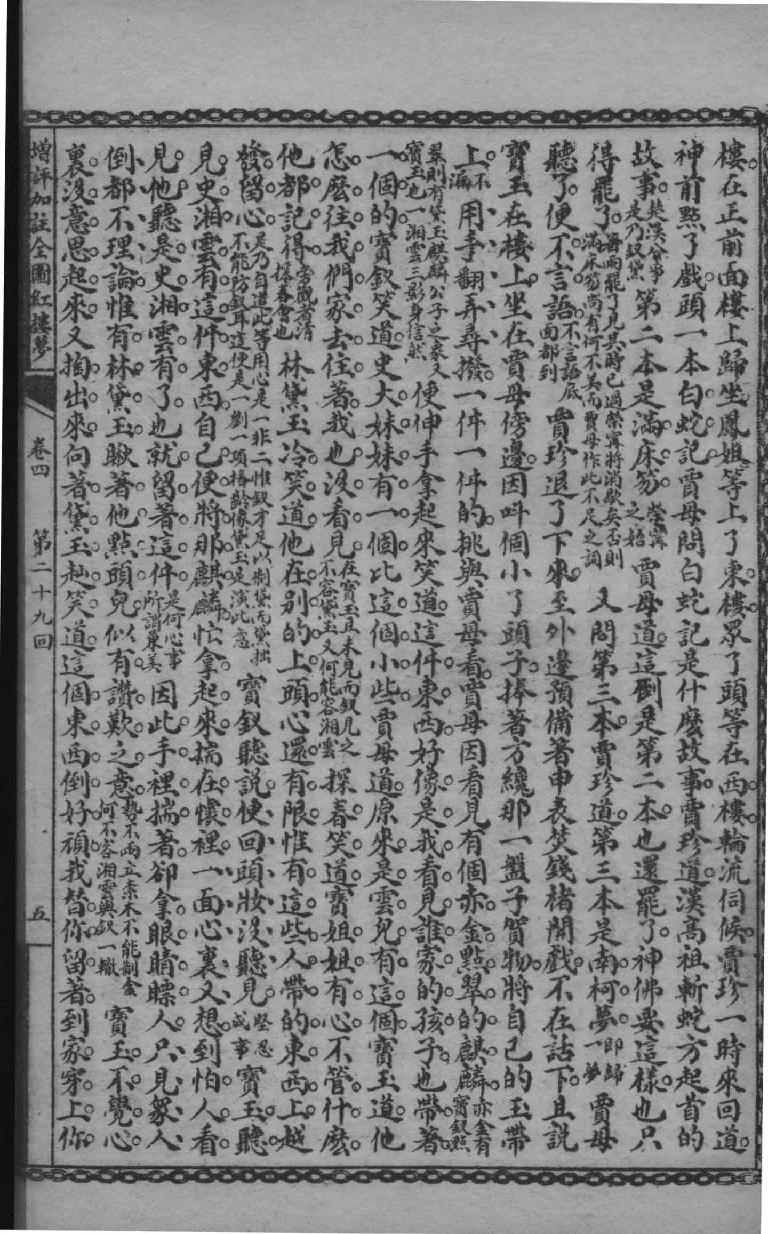 樓在正前面樓上歸坐鳳姐等上了東樓眾了頭等在西樓輪流伺候賈珍一時來回道
神前點了戲頭一本白蛇記賈母問白蛇記是什麽故事賈珍道漢高祖斬蛇方起首的
故事楚漢分爭是乃釵黛第二本是滿床笏榮寧之始賈母道這倒是第二本也還罷了神佛要這樣也只
得罷了再而罷了見其時已過榮寧將消歇矣否則滿床笏尚有何不美而賈母作此不足之詞又問第三本賈珍道第三本是南柯夢即歸一夢賈母
聽了便不言語不言語底面都到賈珍退了下來至外邊預備著申表焚錢楮開戲不在話下且說
寶玉在樓上坐在賈母傍邊因叫個小了頭子捧著方纔那一盤子賀物將自己的玉帶
上不漏用手翻弄尋撥一件一件的挑與賈母看賈母因看見有個赤金點翠的麒麟赤金有寶釵點
翠則有黛玉麒麟公子之象又寶玉也一湘雲三影身信然便伸手拿起來笑道這件東西好像是我看見誰家的孩子也帶著
一個的寶釵笑道史大妹妹有一個比這個小些賈母道原來是雲兒有這個寶玉道他
怎麽往我們家去住著我也沒看見在寶玉且未見而釵見之不容黛玉又何能容湘雲探春笑道寶姐姐有心不管什麽
他都記得旁觀者清探春會也林黛玉冷笑道他在別的上頭心還有限惟有這些人帶的東西上越
發留心是乃自道此等用心是一非二惟釵才足以制黛而黛拙不能防釵耳這便是一劉一項椿齡像黛玉是演此意寶釵聽說便回頭妝沒聽見堅忍成事寶玉聽
見史湘雲有這件東西自己便將那麒麟忙拿起來揣在懷裡一面心裏又想到怕人看
見他聽是史湘雲有了也就留著這件是何心事所謂兼美因此手裡揣著卻拿眼睛瞟人只見眾人
倒都不理論惟有林黛玉瞅著他點頭兒似有讚歎之意勢不兩立柰木不能制金何不容湘雲與釵一轍寶玉不覺心
裏沒意思起來又掏出來向著黛玉赸笑道這個東西倒好頑我替你留著到家穿上你
增評加註全圖紅樓夢
卷四
第二十九回
五